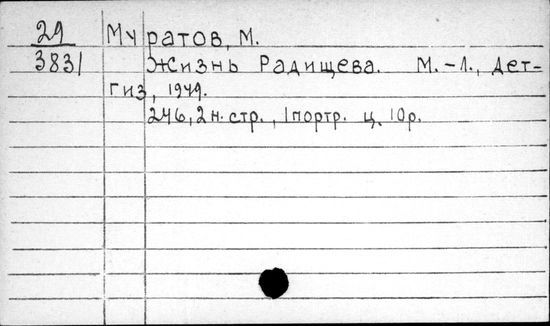 29 Муратов, М.
3831 Жизнь Радищева. М.-Л., Дет-
гиз, 1949.
246, 2 н. стр., 1 портр. ц. 10 р.